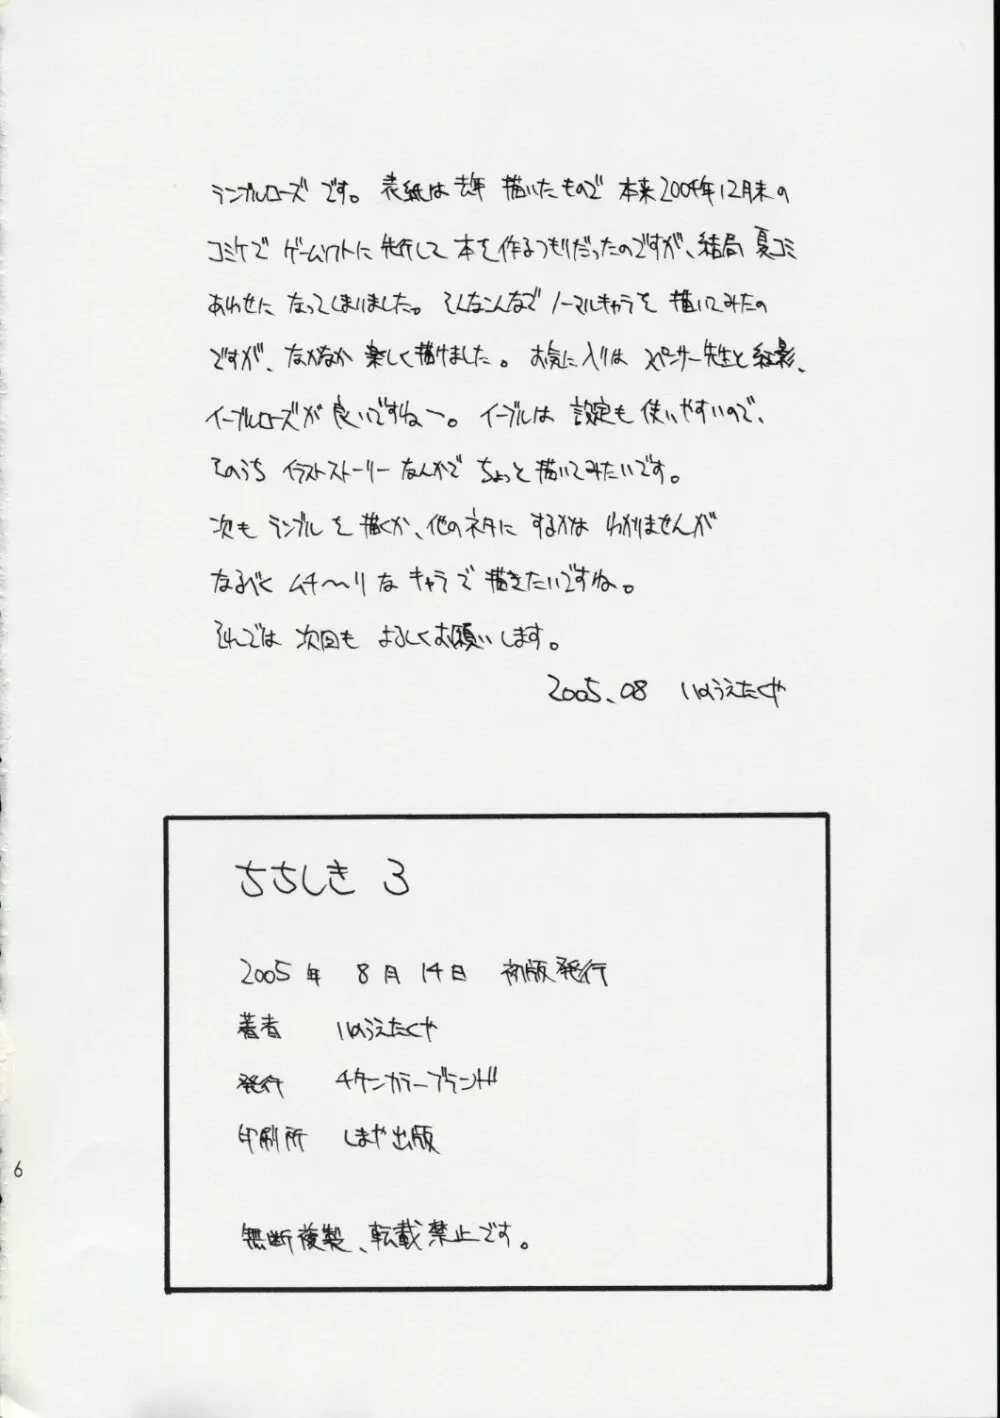 ランブルローズです。表紙は去年描いたもので本来2004年12月末の
コミケでゲームソフトに先行して本を作るつもりだったのですが、結局夏コミ
あわせになってしまいました。そんなこんなでノーマルキャラを描いてみたの
ですが、なかなか楽しく描けました。お気に入りはスペンサー先生と紅影、
イーブルローズが良いですねー。イーブルは設定も使いやすいので、
そのうちイラストストーリーなんかでちょっと描いてみたいです。
次もランブルを描くか、他のネタにするかはわかりませんが
なるべくムチ〜リなキャラで描きたいですね。
それでは次回もよろしくお願いします。
2005.08 いのうえたくや
ちちしき 3
2005年 8月14日 初版発行
著者 いのうえたくや
発行 チタンカラーブランド
印刷所 しまや出版
6
無断複製、転載禁止です。